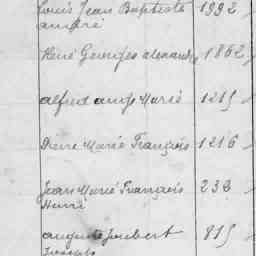 Louis Jean Baptiste 1992
andré
René Georges alexandre 1862
alfred ange Marie 1215
Pierre Marie François 1216
Jean Marie François 232
Henri
auguste Joubert 815
Joseph